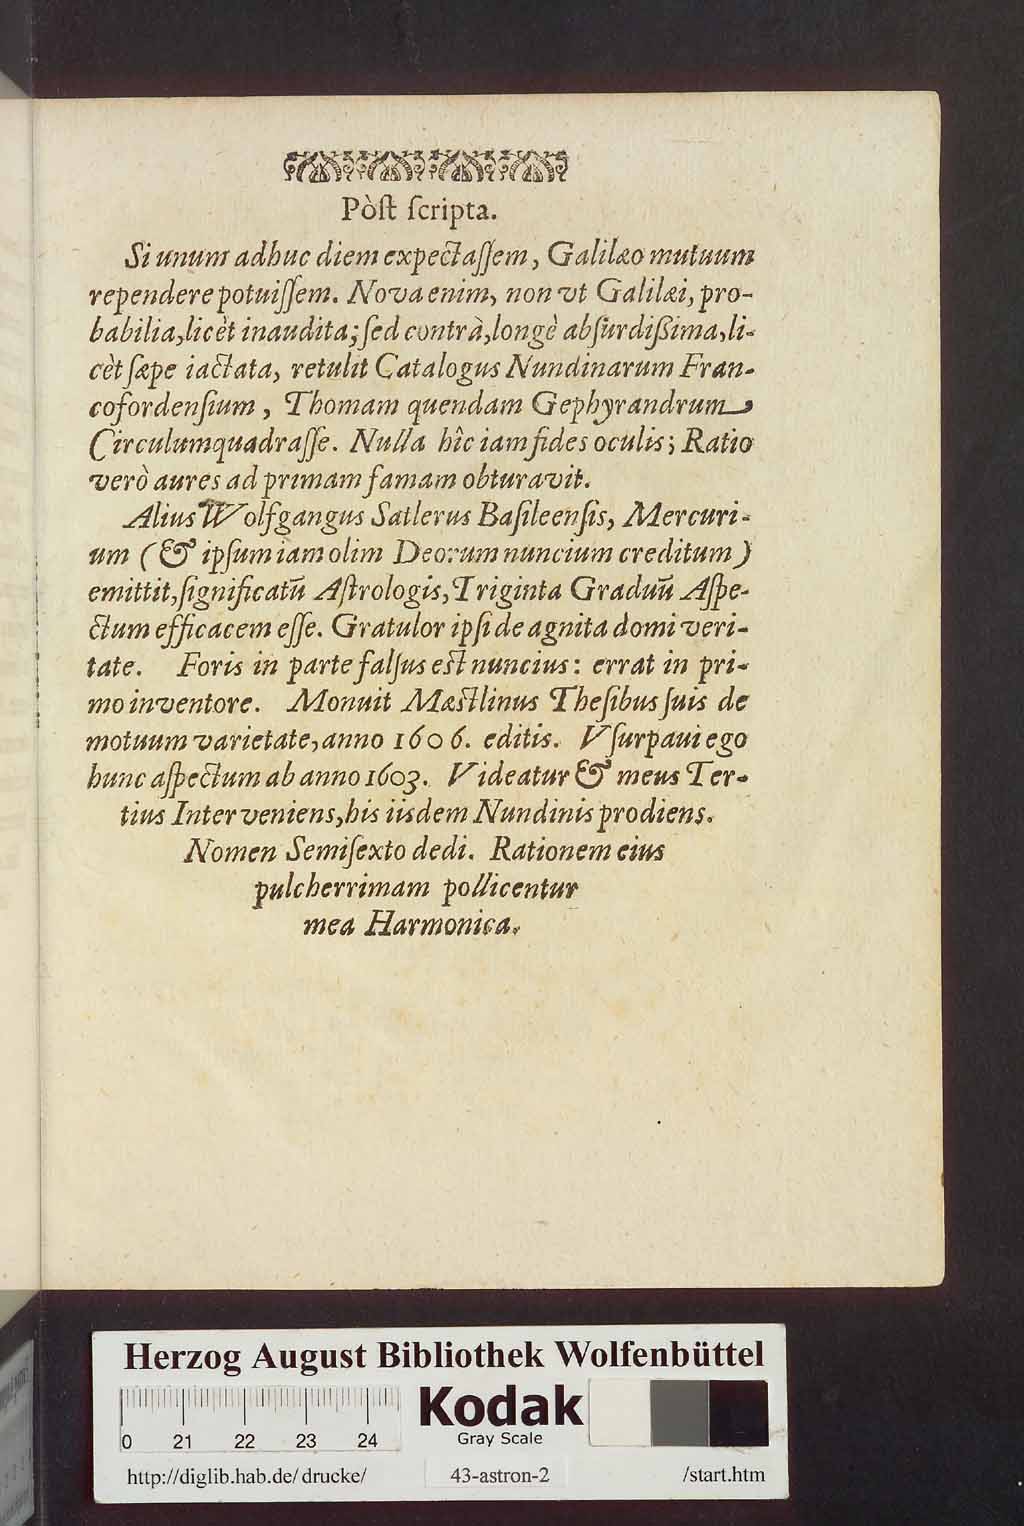 Pòſt ſcripta.
Si unum adhuc diem expectaſſem, Galilæo mutuum
rependere potuiſſem. Nova enim, non vt Galilæi, pro-
babilia, licèt inaudita; ſed contrà, longè abſurdißima, li-
cèt ſæpe iactata, retulit Catalogus Nundinarum Fran-
cofordenſium, Thomam quendam Gephyrandrum
Circulum quadraſſe. Nulla hîc iam fides oculis; Ratio
verò aures ad primam famam obturavit.
Alius Wolfgangus Satlerus Baſileenſis, Mercuri-
um (& ipſum iam olim Deorum nuncium creditum)
emittit, ſignificatū Aſtrologis, Triginta Graduū Aſpe-
ctum efficacem eſſe. Gratulor ipſi de agnita domi veri-
tate. Foris in parte falſus eſt nuncius: errat in pri-
mo inventore. Monuit Mæſtlinus Theſibus ſuis de
motuum varietate, anno 1606. editis. Vſurpaui ego
hunc aſpectum ab anno 1603. Videatur & meus Ter-
tius Interveniens, his iisdem Nundinis prodiens.
Nomen Semiſexto dedi. Rationem eius
pulcherrimam pollicentur
mea Harmonica.
Herzog August Bibliothek Wolfenbüttel
0 21 22 23 24
Kodak
Gray Scale
http://diglib.hab.de/drucke/ 43-astron-2 /start.htm